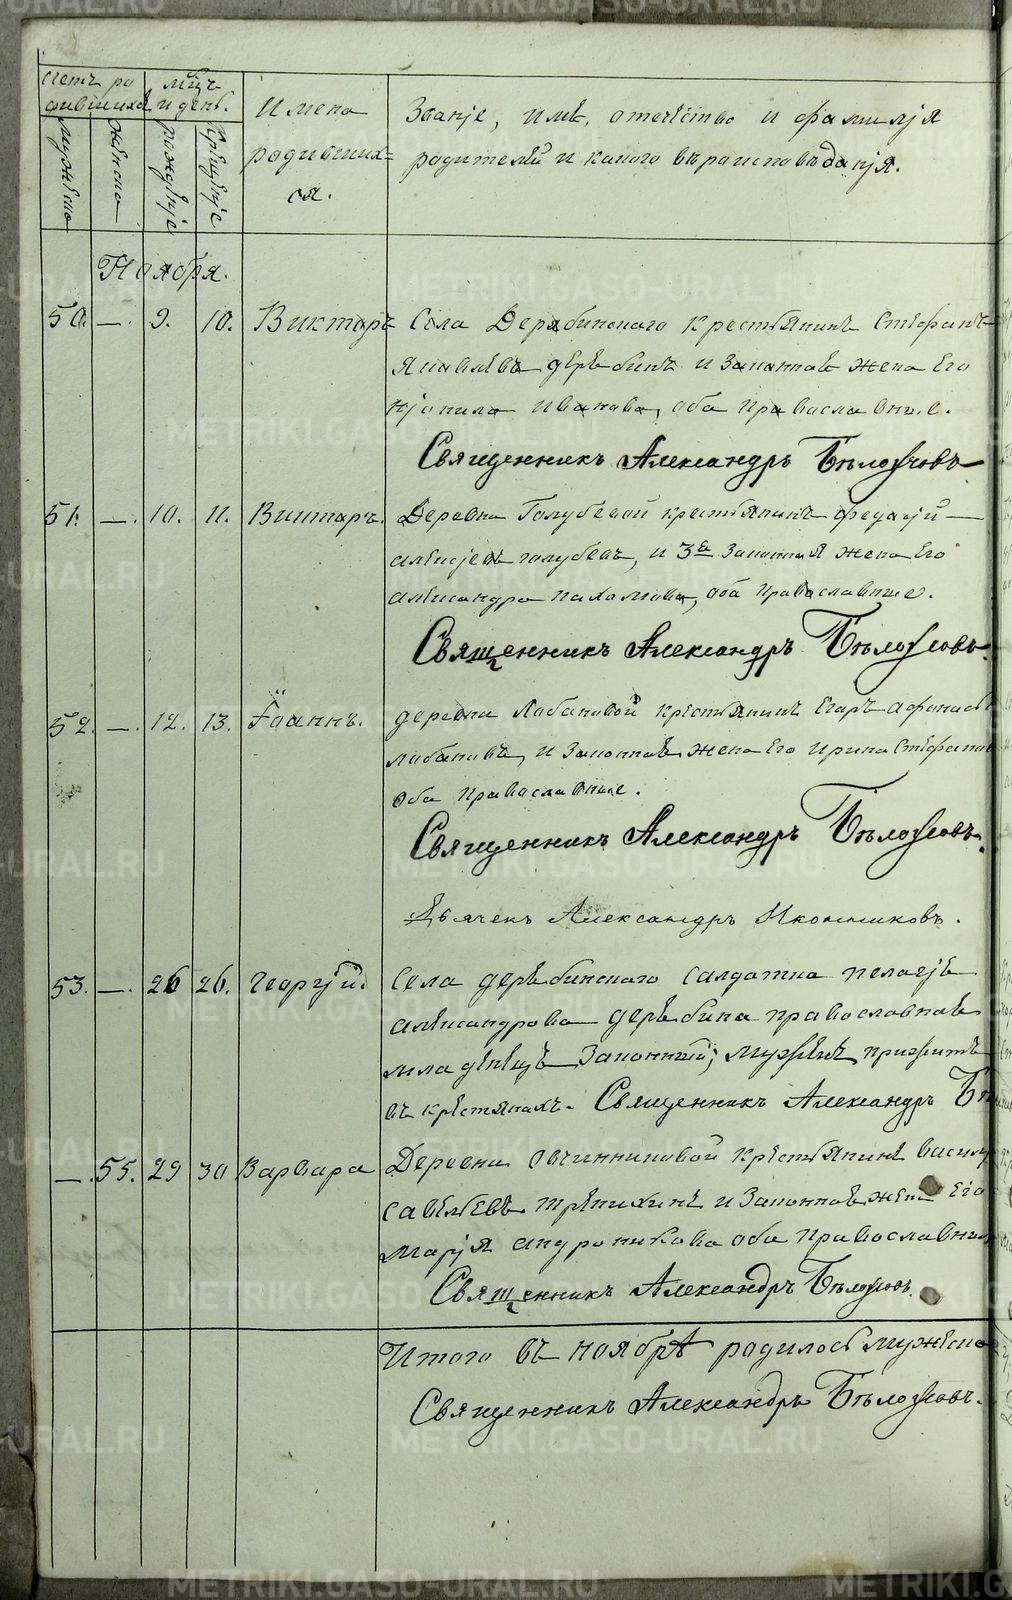 Счетъ ро
дившихся
Мужеска
Женска
Мѣсяцъ
и день.
рожденіе
крещеніе
Имена
родивших-
ся.
Званіе, имя, отечество и фамилія
родителей и какого вѣроисповѣданія.
Ноября.
50. — 9. 10. Викторъ Села Дерябинскаго крестьянинъ Стефанъ
Яковлевъ дерябинъ и законная жена Его
Неонила Иванова, оба православные.
Священникъ Александръ Бѣлозеровъ
51. — 10. 11. Викторъ. Деревни Голубевой крестьянинъ федосій
алексѣевъ голубевъ, и 3я законная жена Его
александра пахомова, оба православные.
Священникъ Александръ Бѣлозеровъ.
52. — 12. 13. Іоаннъ. деревни Лабановой крестьянинъ Егоръ афонасьевъ
лабановъ, и законная жена Его ирина Стефанова
оба православные.
Священникъ Александръ Бѣлозеровъ.
Дьячекъ Александръ Иконниковъ.
53. — 26 26. Георгій. Села дерябинскаго салдатка пелагія
александрова дерябина православная
младенецъ законный; мужемъ прижитъ
въ крестьянахъ. Священникъ Александръ Бѣ
— 55. 29 30 Варвара Деревни Овчинниковой крестьянинъ василій
савельевъ трепихинъ и законная жена Его
Марія андроникова оба православные
Священникъ Александръ Бѣлозеровъ.
Итого въ ноябрѣ родилось мужеска
Священникъ Александръ Бѣлозеровъ.
METRIKI.GASO-URAL.RU